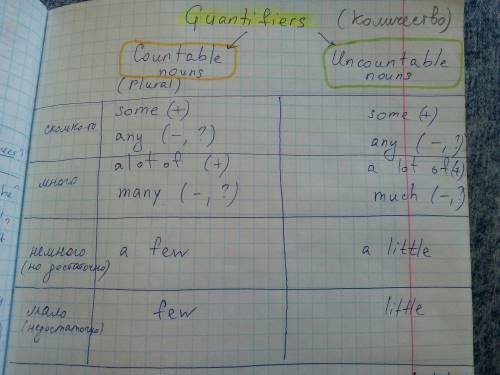 Quantifiers (количество)
Countable nouns
(Plural)
Uncountable nouns
some (+)
any (-, ?)
some (+)
any (-, ?)
много
a lot of (+)
many (-, ?)
a lot of (+)
much (-, ?)
немного
(но достаточно)
a few
a little
мало
(недостаточно)
few
little